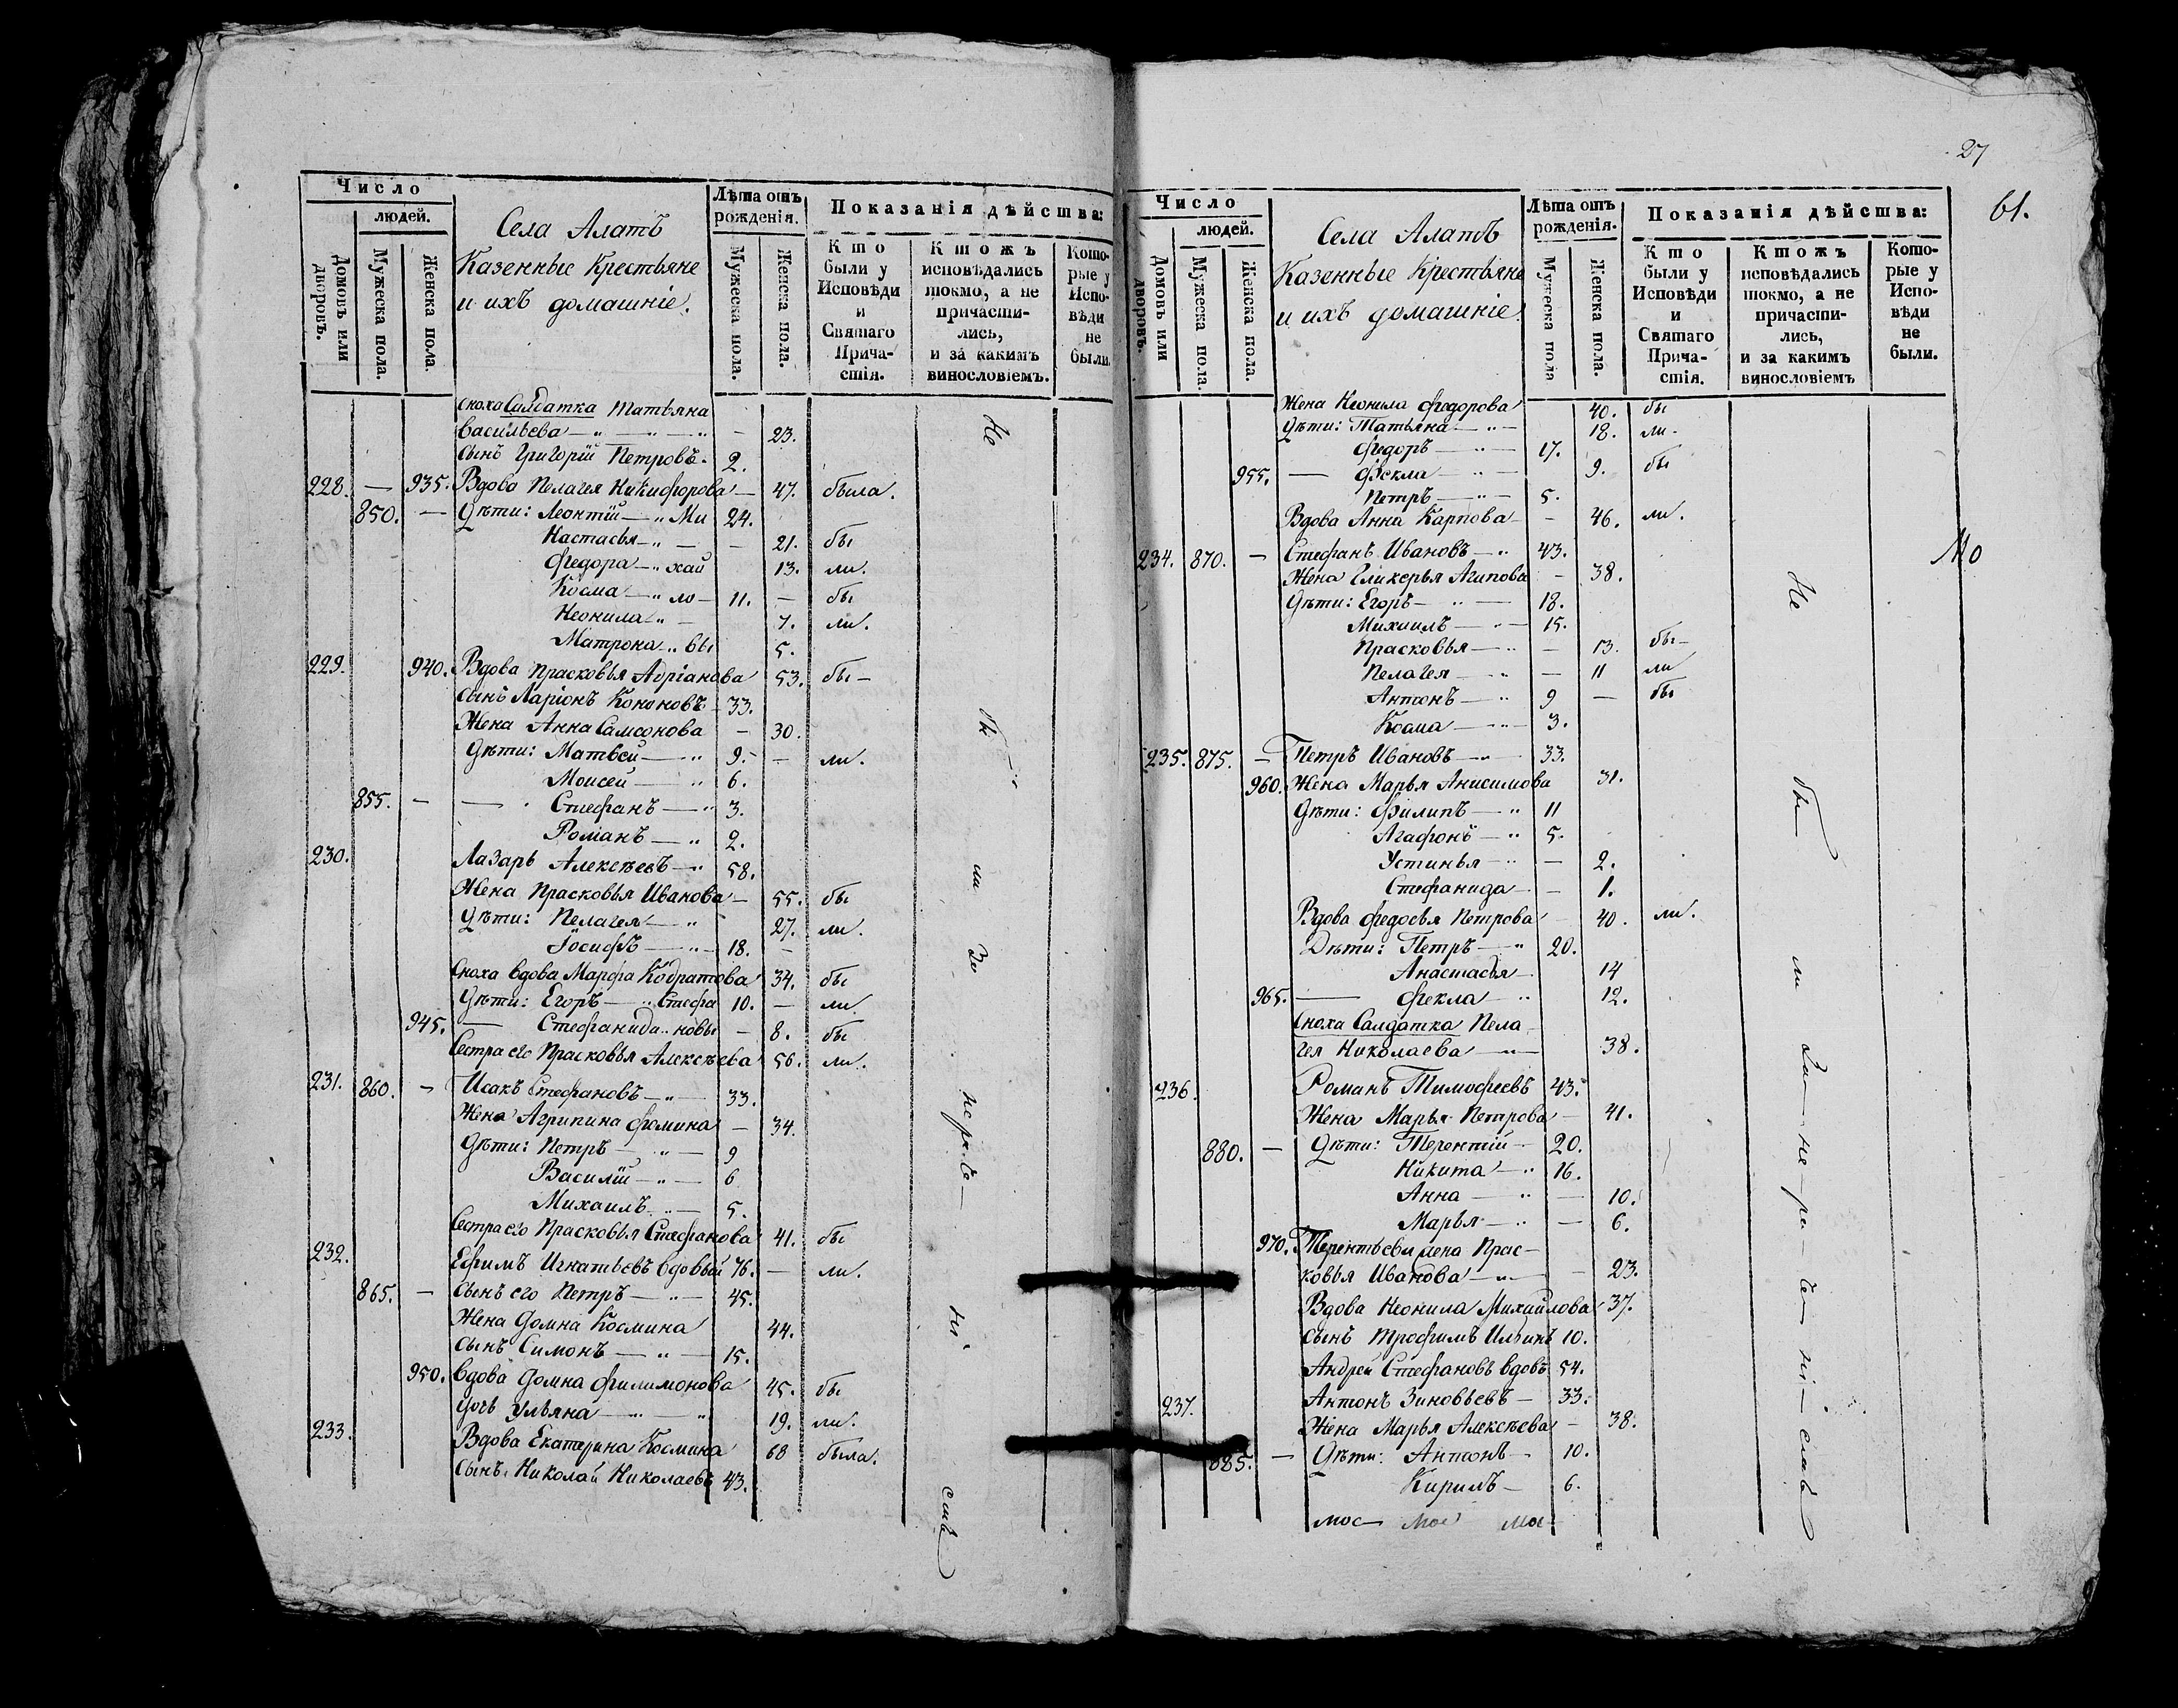 Число
людей.
Домовъ или дворовъ.
Мужеска пола.
Женска пола.
Села Алатъ
Казенные Крестьяне
и ихъ домашніе.
Лѣта отъ рожденія.
Мужеска пола.
Женска пола.
Показанія дѣйства:
Кто были у Исповѣди и Святаго Причастія.
Ктожъ исповѣдались токмо, а не причастились, и за какимъ винословіемъ.
Которые у Исповѣди не были.
сноха Салдатка Татьяна
Васильева — 23.
Сынъ Григорій Петровъ. 2.
228. — 935. Вдова Пелагея Никифорова — 47. была.
850. — Дѣти: Леонтій — Ми 24.
Настасья — 21. бы
Федора — хай 13. ли.
Косма — ло — 11. — бы
Неонила — 7. ли.
Матрона вы 5.
229. 940. Вдова Прасковья Адріанова 53. бы —
Сынъ Ларіонъ Кононовъ 33.
Жена Анна Самсонова — 30.
Дѣти: Матвей — 9. — ли.
Моисей — 6.
855. — — Стефанъ — 3.
Романъ — 2.
230. Лазарь Алексѣевъ — 58.
Жена Прасковья Иванова — 55. бы
Дѣти: Пелагея — 27. ли.
Іосифъ — 18. —
Сноха вдова Марфа Кодратова 34. бы
Дѣти: Егоръ — Стефа 10. — ли.
945. — Стефанида новы — 8. бы
Сестра его Прасковья Алексѣева 56. ли.
231. 860. — Исакъ Стефановъ — 33.
Жена Агрипина Фомина — 34.
Дѣти: Петръ — 9
Василій — 6
Михаилъ — 5.
Сестра его Прасковья Стефанова 41. бы
232. Ефимъ Игнатьевъ вдовый 76. — ли.
865. — Сынъ его Петръ — 45.
Жена Домна Космина 44.
Сынъ Симонъ — 15.
950. Вдова Домна Филимонова 45. бы
Дочь Ульяна — 19. ли.
233. Вдова Екатерина Космина 68 была.
Сынъ Николай Николаевъ 43.
27
61.
Число
людей.
Домовъ или дворовъ.
Мужеска пола.
Женска пола.
Села Алатъ
Казенные Крестьяне
и ихъ домашніе.
Лѣта отъ рожденія.
Мужеска пола
Женска пола.
Показанія дѣйства:
Кто были у Исповѣди и Святаго Причастія.
Ктожъ исповѣдались токмо, а не причастились, и за какимъ винословіемъ
Которые у Исповѣди не были.
Жена Неонила Федорова 40. бы
Дѣти: Татьяна — 18. ли.
Федоръ — 17.
955. — Фекла — 9. бы
Петръ — 5.
Вдова Анна Карпова — 46. ли.
234. 870. — Стефанъ Ивановъ — 43.
Жена Гликерья Агипова — 38.
Дѣти: Егоръ — 18.
Михаилъ — 15.
Прасковья — 13. бы —
Пелагея — 11 ли
Антонъ — 9 — бы
Косма — 3.
235. 875. — Петръ Ивановъ — 33.
960. Жена Марья Анисимова 31.
Дѣти: Филипъ — 11
Агафонъ — 5.
Устинья — 2.
Стефанида — 1.
Вдова Федосья Петрова 40. ли.
Дѣти: Петръ — 20.
Анастасья 14
965. — Фекла — 12.
Сноха Салдатка Пела
гея Николаева — 38.
236. Романъ Тимофеевъ 43.
Жена Марья Петрова — 41.
880. — Дѣти: Терентій — 20.
Никита — 16.
Анна — 10.
Марья — 6.
970. Терентьева жена Прас—
ковья Иванова — 23.
Вдова Неонила Михайлова 37.
Сынъ Трофимъ Ильинъ 10.
Андрей Стефановъ вдовъ 54.
237. Антонъ Зиновьевъ — 33.
Жена Марья Алексѣева — 38.
885. — Дѣти: Антонъ — 10.
Кирилъ — 6.